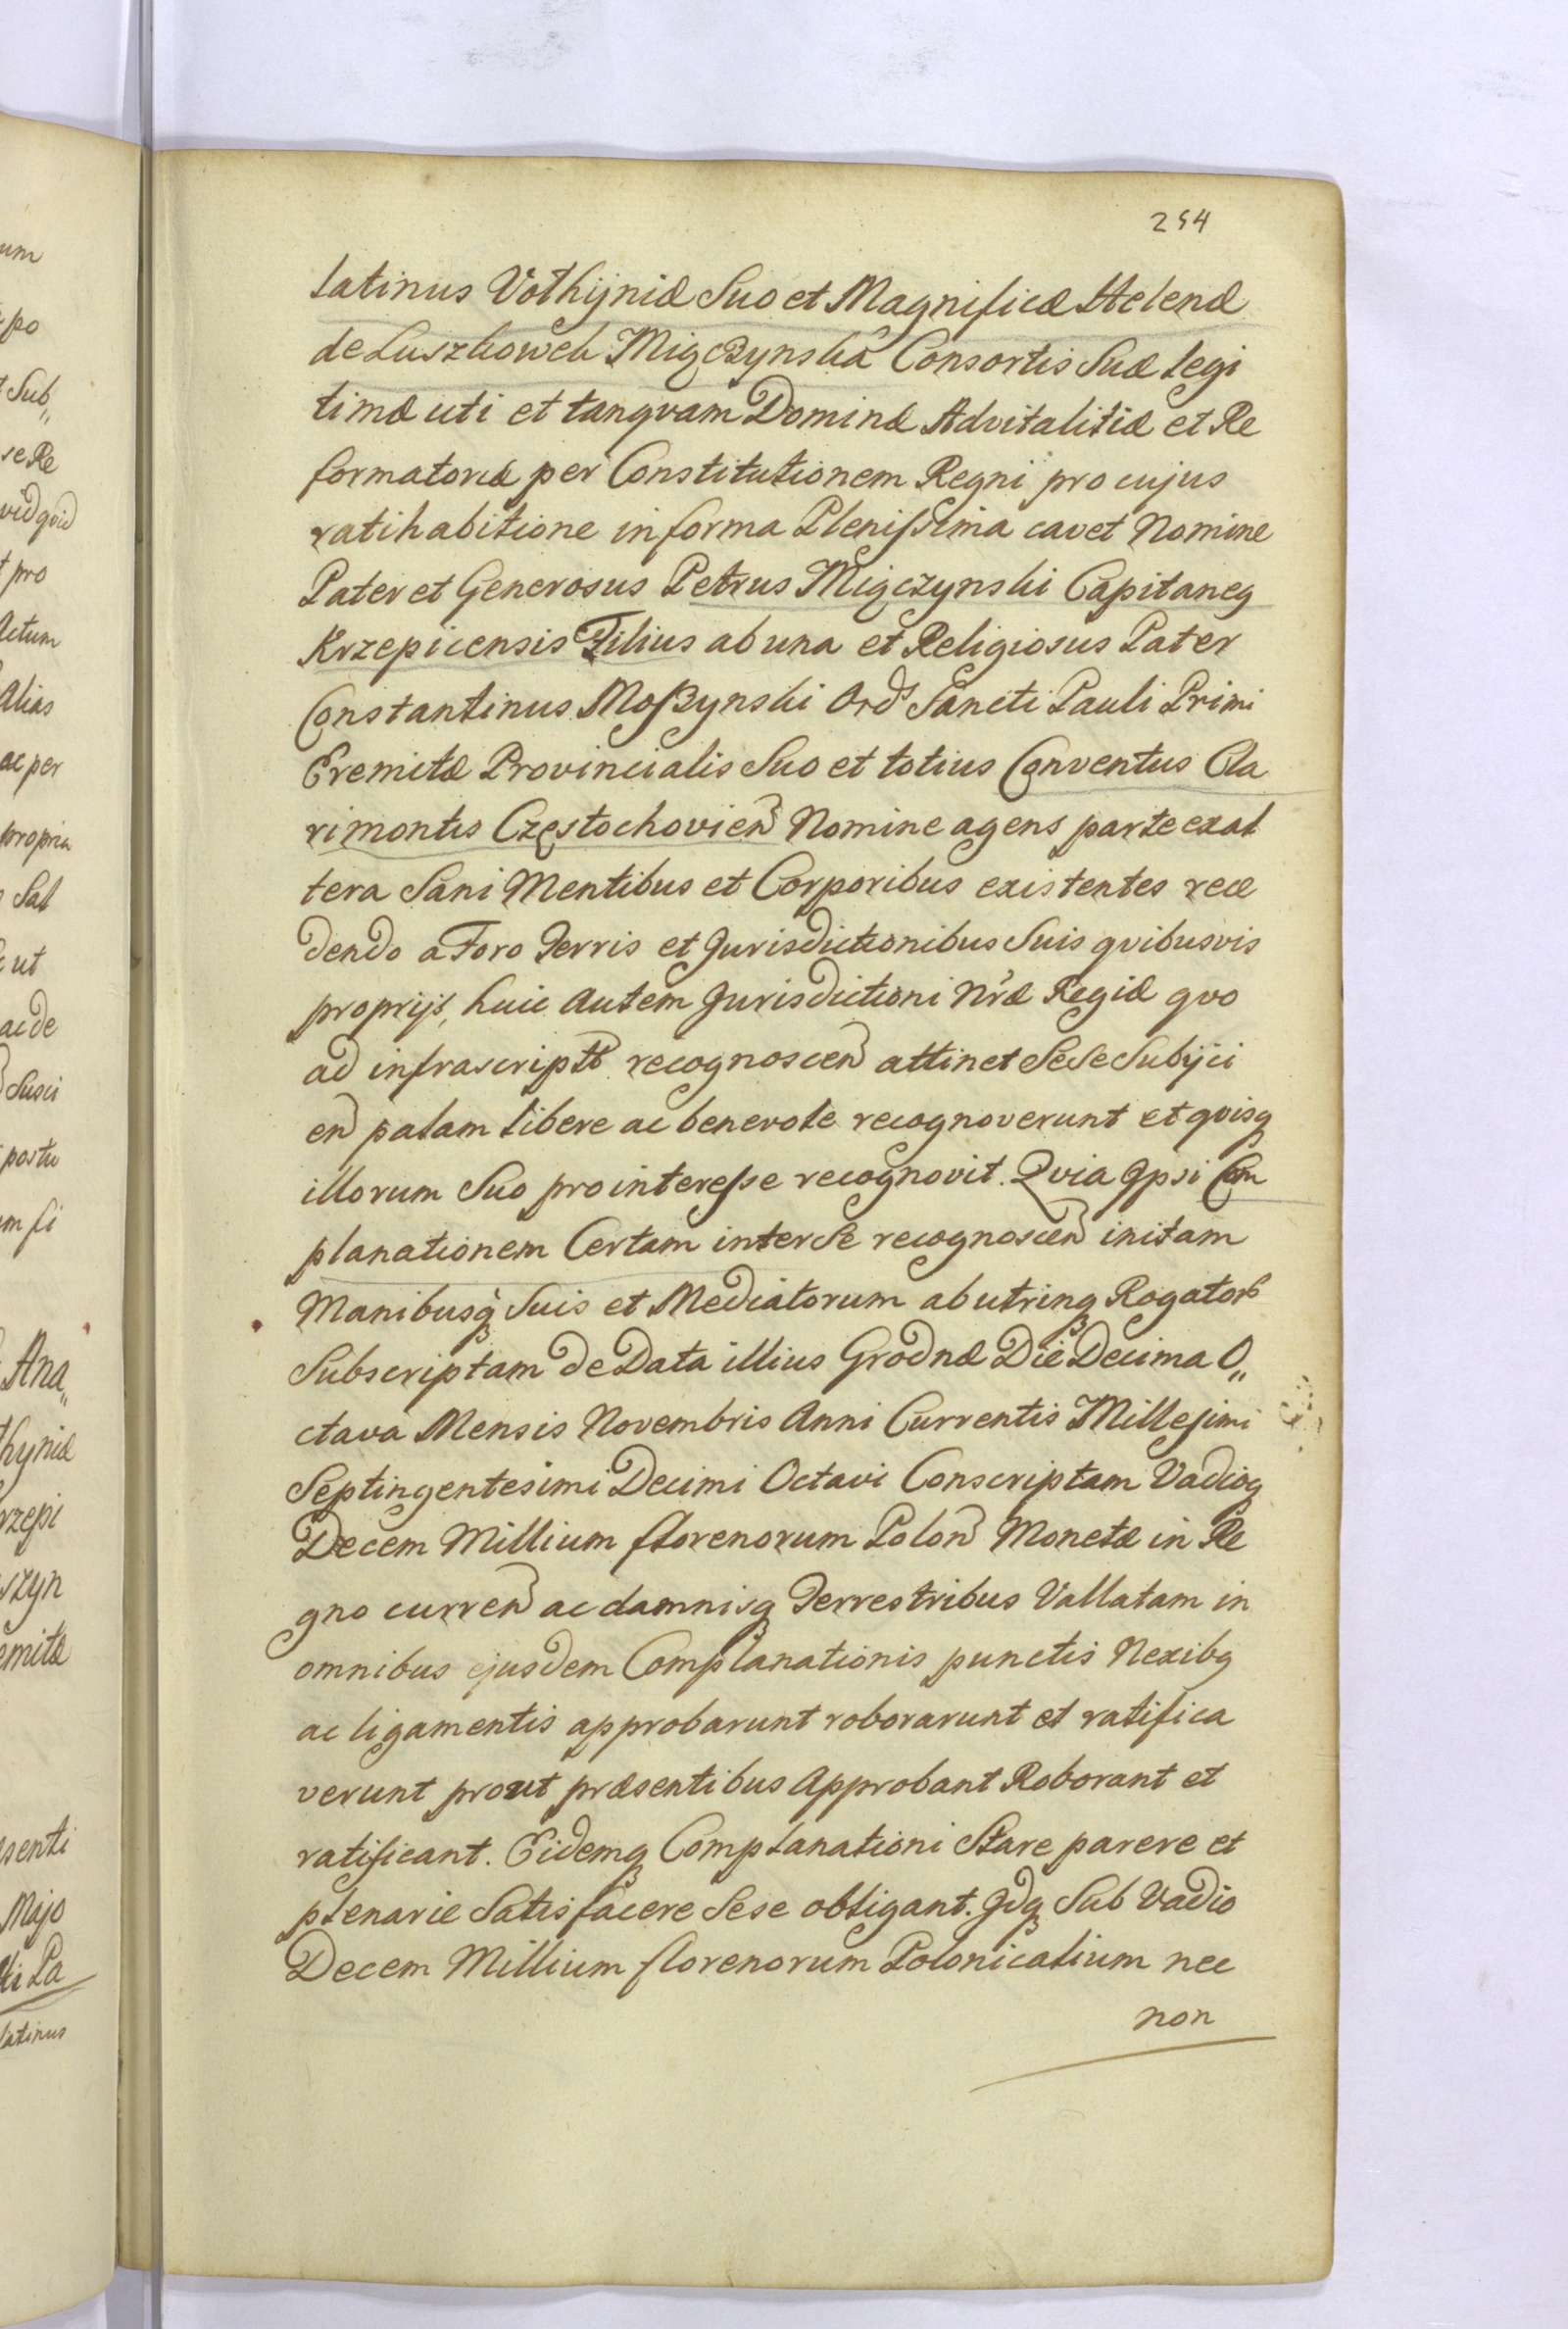 254
latinus Volhijniæ Suo et Magnificæ Helenæ
de Luszkoweh Miączynska Consortis Suæ legi
timæ uti et tanqvam Dominæ Advitalitiæ et Re
formatoriæ per Constitutionem Regni pro cujus
ratihabitione in forma Plenissima cavet Nomine
Pater et Generosus Petrus Miączynski Capitaneq
Krzepicensis Filius ab una et Religiosus Pater
Constantinus Moszynski Ord Sancti Pauli Primi
Eremitæ Provincialis Suo et totius Conventus Cla
rimontis Częstochovien Nomine agens parte ex al
tera Sani Mentibus et Corporibus existentes rece
dendo a Foro Terris et Jurisdictionibus Suis qvibusvis
proprijs, huic autem Jurisdictioni Nræ Regiæ qvo
ad infrascriptt recognoscen attinet Sese Subijci
en palam libere ac benevole recognoverunt et qvisq
illorum Suo pro interesse recognovit. Qvia Ipsi Com
planationem Certam inter Se recognoscen initam
Manibusq Suis et Mediatorum ab utrinq Rogator
Subscriptam de Data illius Grodnæ Die Decima O„
ctava Mensis Novembris Anni Currentis Millesimi
Septingentesimi Decimi Octavi Conscriptam Vadioq
Decem Millium florenorum Polon Monetæ in Re
gno curren ac damnisq Terrestribus Vallatam in
omnibus ejusdem Complanationis punctis Nexibq
ac ligamentis approbarunt roborarunt et ratifica
verunt prout præsentibus Approbant Roborant et
ratificant. Eidemq Complanationi Stare parere et
plenarie Satisfacere Sese obligant. Idq Sub Vadio
Decem Millium florenorum Polonicalium nec
non
um
po
Sub„
se Re
pro
Actum
Alias
ac per
propria
Sal
ut
ac de
Susci
postu
m fi
Ana„
hyniæ
rzepi
szyn
emitæ
senti
Majo
ki Pa
latinus